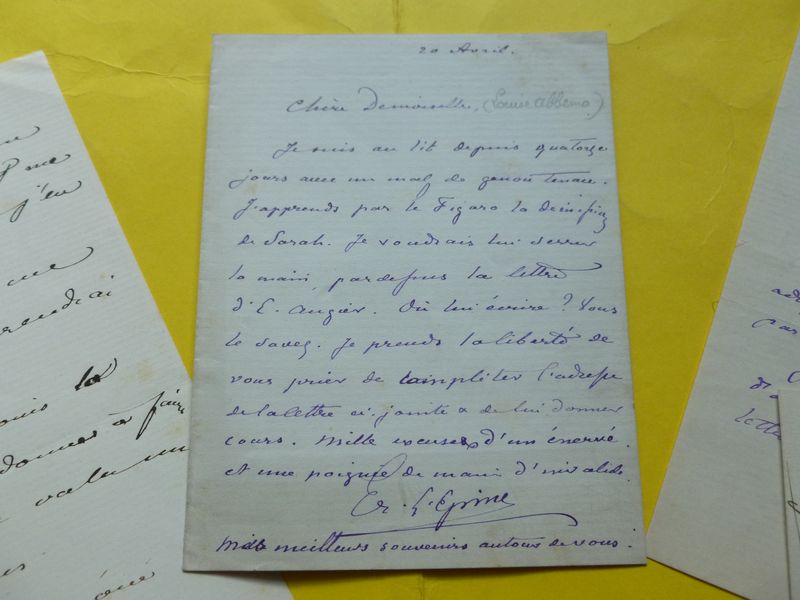 20 Avril.
Chère Demoiselle, (Louise Abbema)
Je suis au lit depuis quatorze
jours avec un mal de genou tenace.
J'apprends par le Figaro la
de Sarah. Je voudrais lui serrer
la main, pardessus la lettre
d'E. Augier. Où lui écrire? Vous
le savez. Je prends la liberté de
vous prier de compléter l'adresse
de la lettre ci-jointe & de lui donner
cours. Mille excuses d'un énervé
et une poignée de main d'invalide.
L'Epine
Mes meilleurs souvenirs autour de vous.
me
j'en
me
rendrai
la
donner à faire
un
lettre